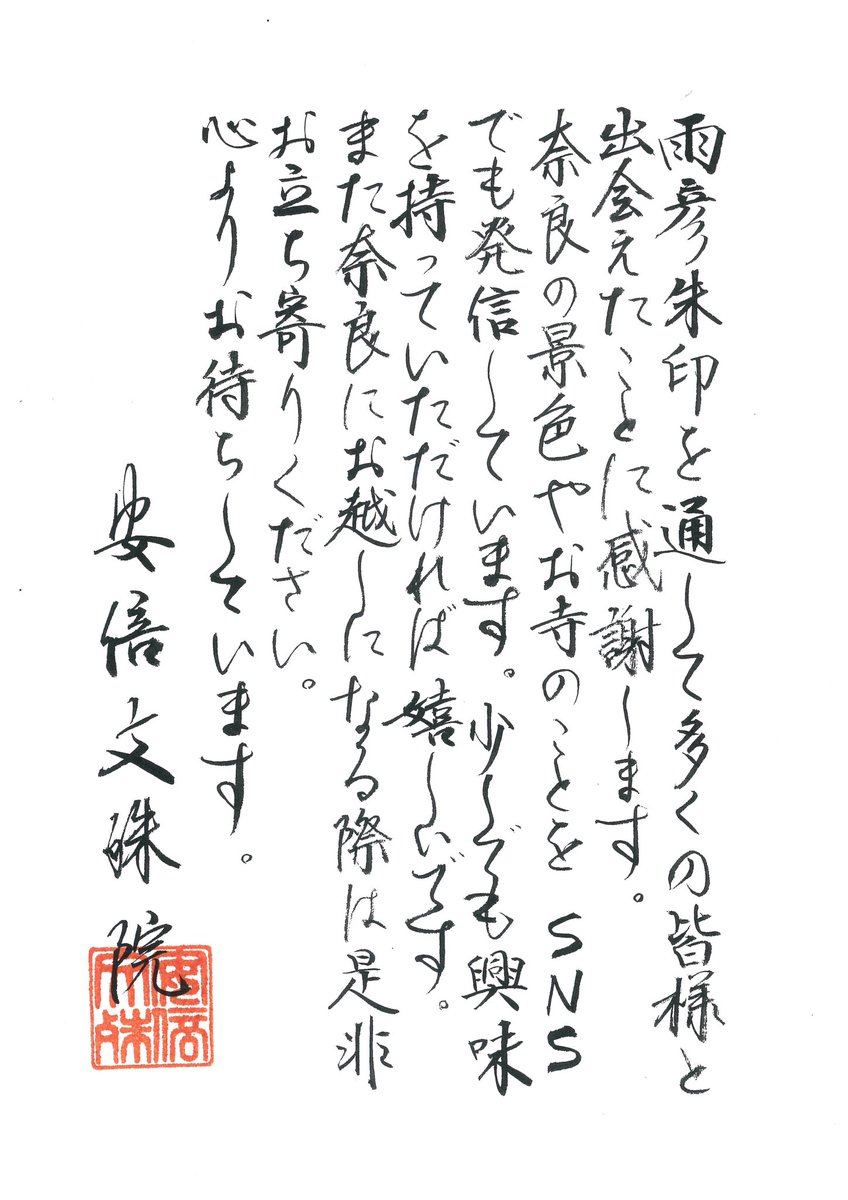 雨彦朱印を通して多くの皆様と
出会えたことに感謝します。
奈良の景色やお寺のことをSNS
でも発信しています。少しでも興味
を持っていただければ嬉しいです。
また奈良にお越しになる際は是非
お立ち寄りください。
心よりお待ちしています。
安倍文殊院